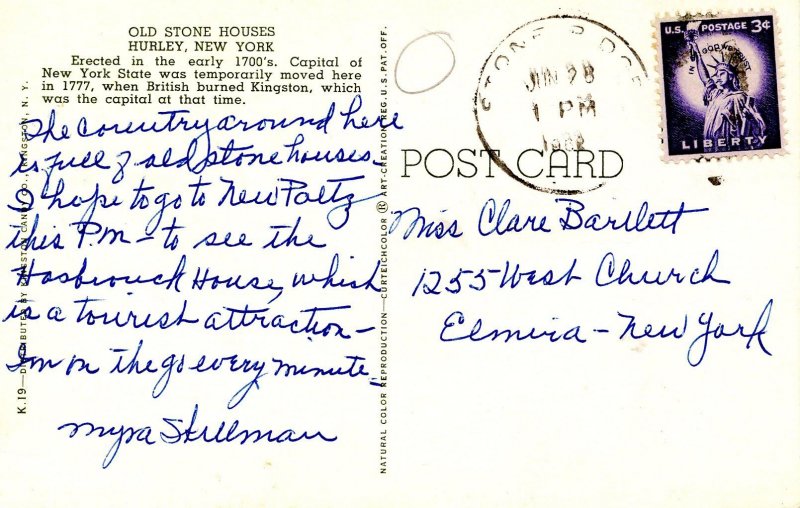 OLD STONE HOUSES
HURLEY, NEW YORK
Erected in the early 1700's. Capital of
New York State was temporarily moved here
in 1777, when British burned Kingston, which
was the capital at that time.
The country around here
is full of old stone houses.
I hope to go to New Paltz
this P.M. - to see the
Hasbrouck House, which
is a tourist attraction -
I'm on the go every minute.
Myra Stillman
K.19—DISTRIBUTED BY KINGSTON CANDY CO., KINGSTON, N. Y.
NATURAL COLOR REPRODUCTION—CURTEICHCOLOR ® ART-CREATION REG. U.S. PAT. OFF.
STONE RIDGE
JUN 28
1 PM
U.S. POSTAGE 3¢
IN GOD WE TRUST
LIBERTY
POST CARD
Miss Clare Bartlett
1255 West Church
Elmira - New York